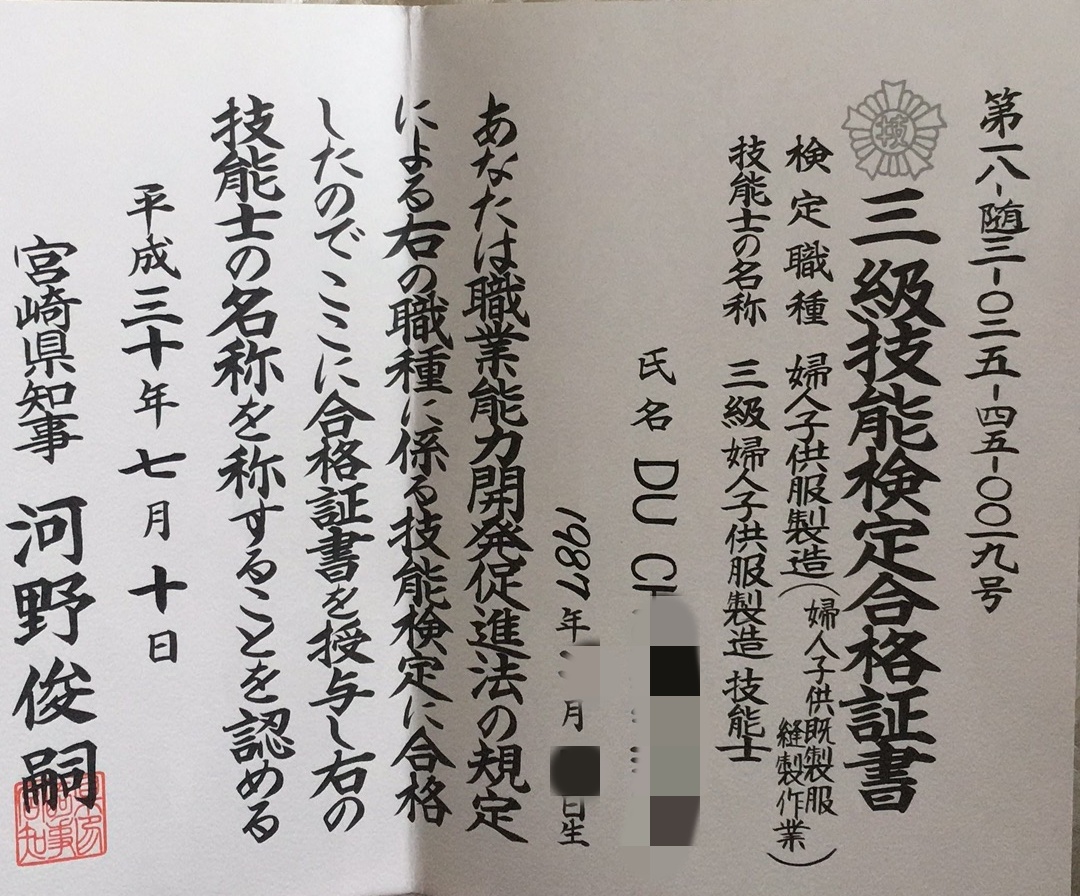 第一八-随三-〇二五-四五-〇〇一九号
技
三級技能検定合格証書
検定職種 婦人子供服製造（婦人子供既製服
縫製作業）
技能士の名称 三級婦人子供服製造技能士
氏名 DU
1987年 月 日生
あなたは職業能力開発促進法の規定
による右の職種に係る技能検定に合格
したのでここに合格証書を授与し右の
技能士の名称を称することを認める
平成三十年七月十日
宮崎県知事 河野俊嗣